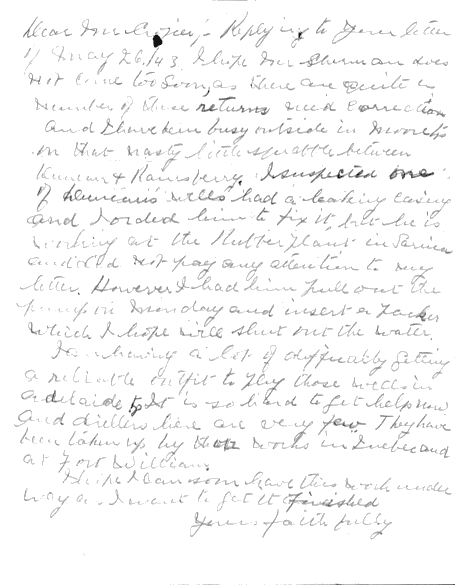 Dear Mr. Crozier;- Replying to your letter
of May 26/43. I hope Mr Sherman does
not come too soon, as there are quite a
number of these returns need correction
and I have been busy outside in Moore Tp
on that nasty little squabble between
Duncan & Ramsberry. I suspected one
of Duncan's wells had a leaking casing
and I orded him to fix it, but he is
working at the Rubber plant in Sarnia
and did not pay any attention to my
letter. However I had him pull out the
pump on Monday and insert a packer
which I hope will shut out the water.
I am having a lot of difficulty getting
a reliable outfit to plug those wells in
Adelaide Tp. It is so hard to get help now
and drillers here are very few. They have
been taken up by works in Quebec and
at Fort William.
I hope I can soon have this work under
way as I want to get it finished
Yours faithfully